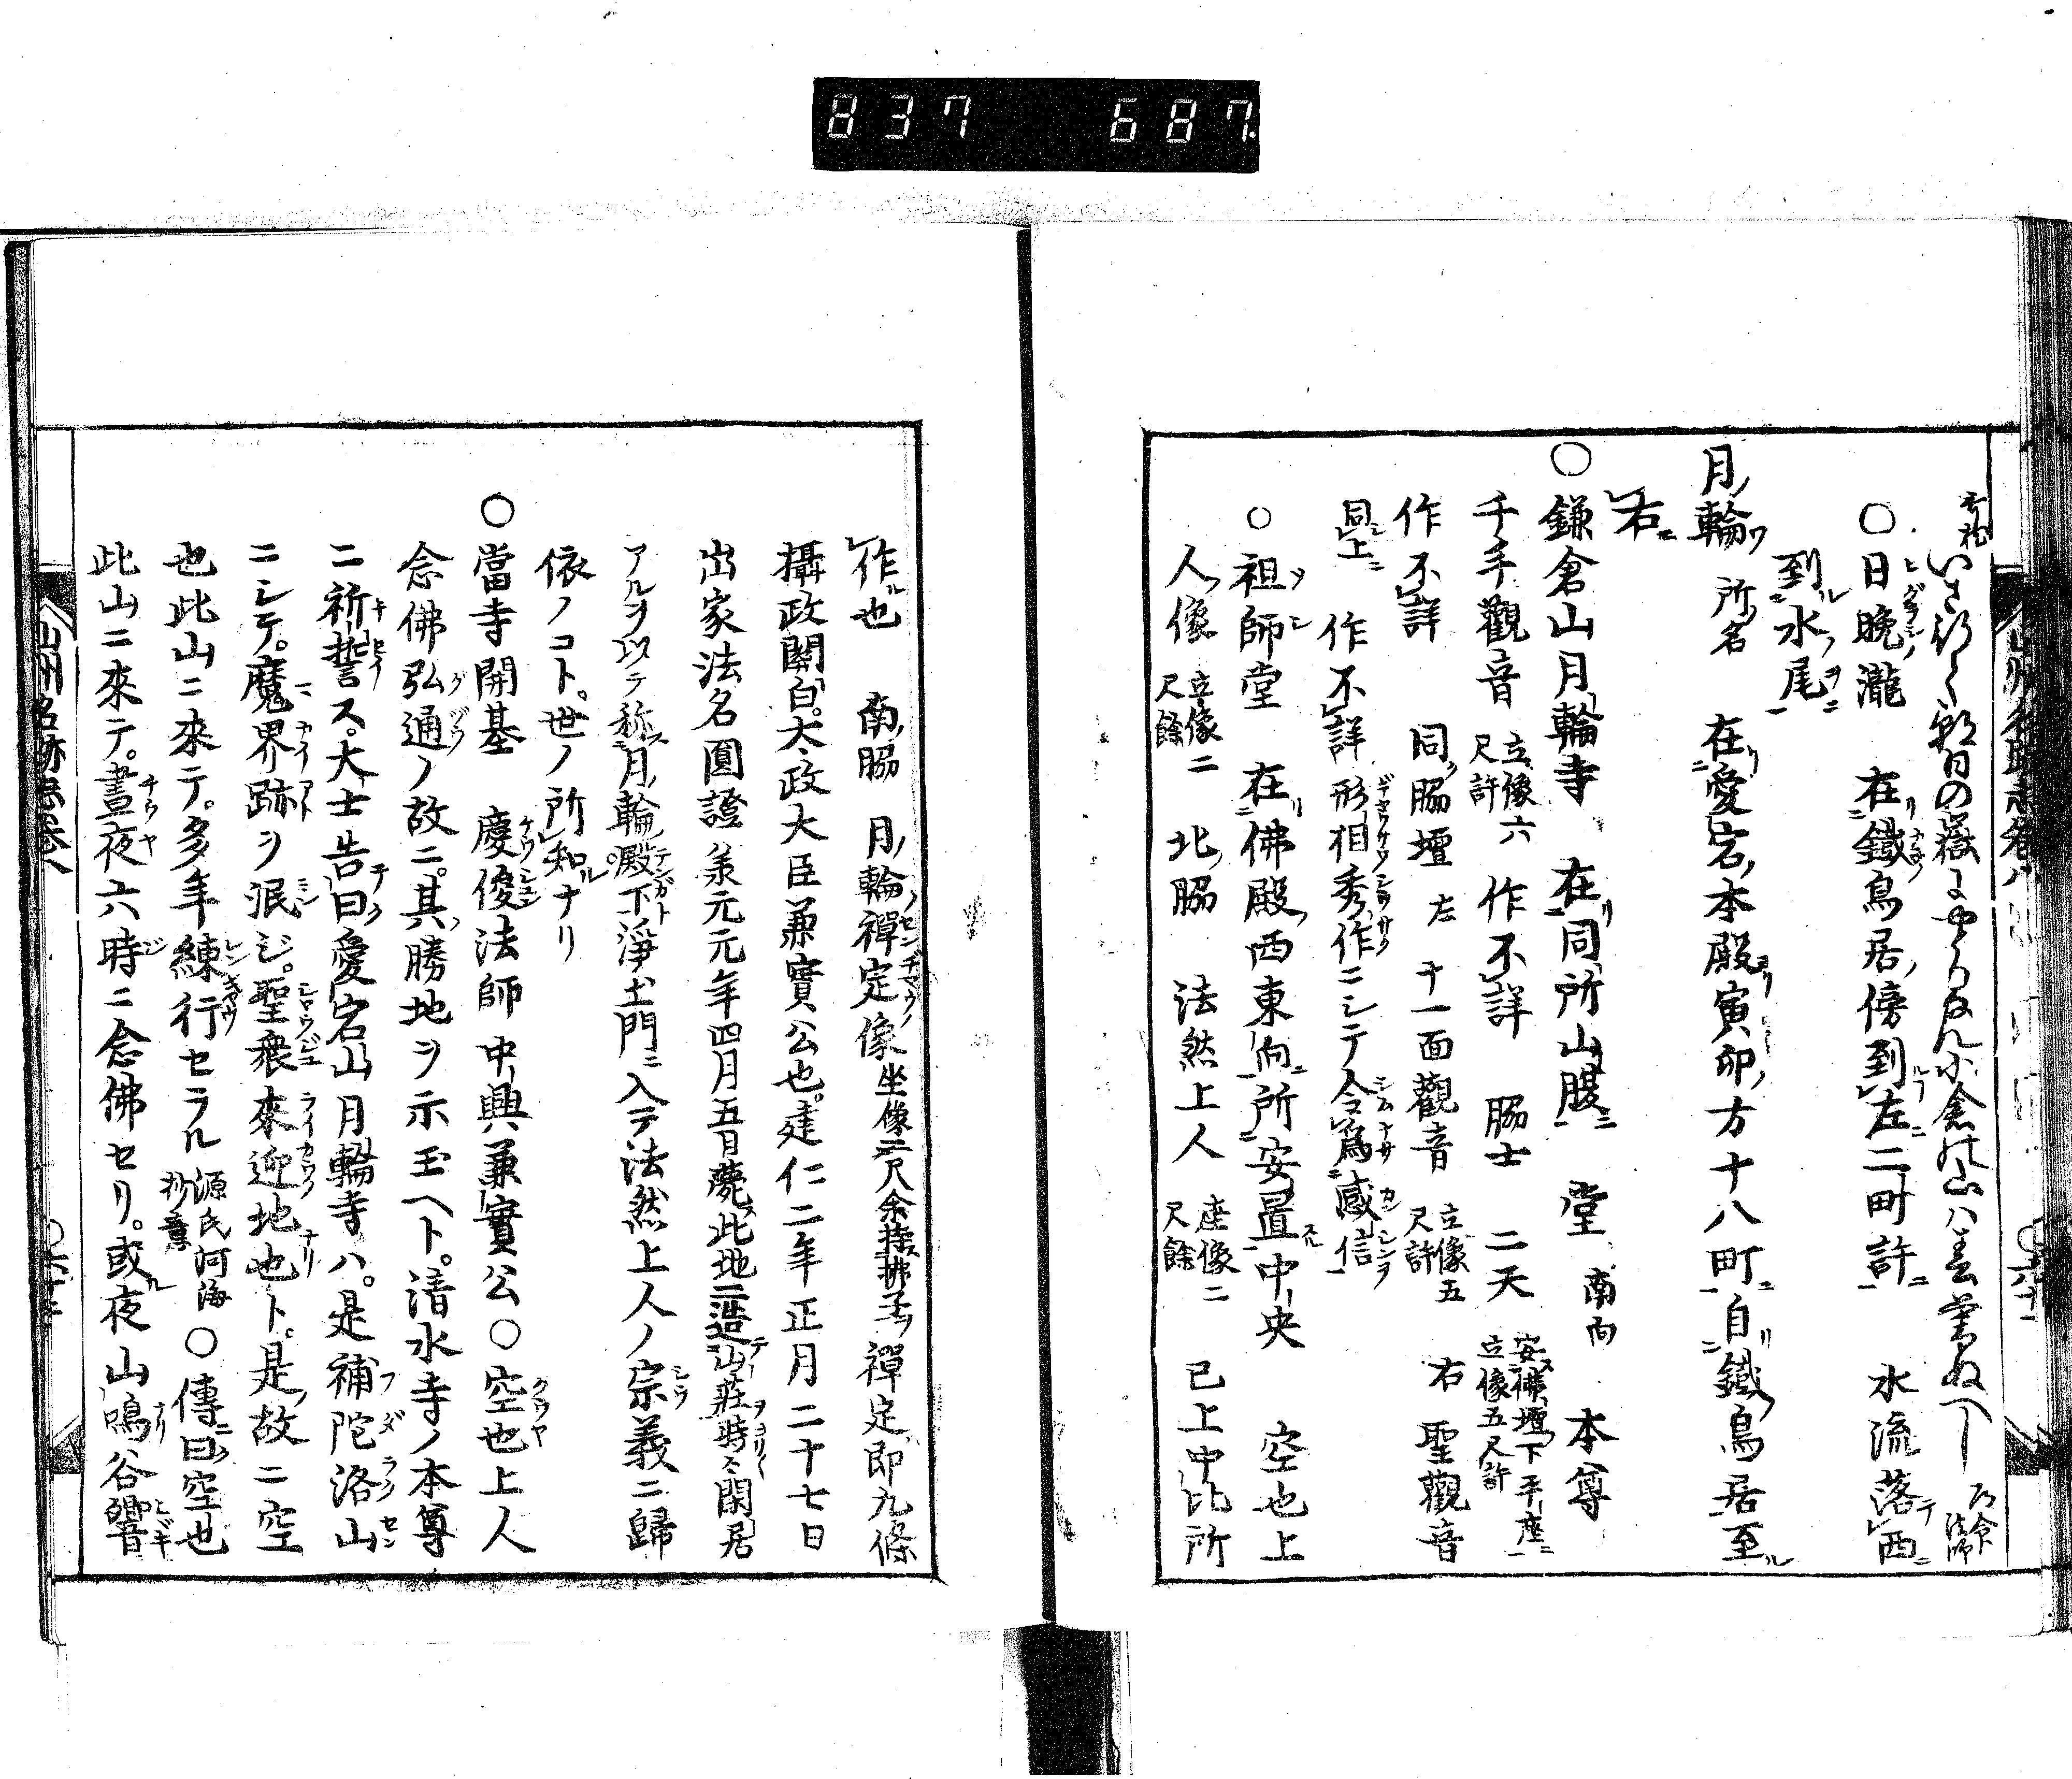 837 687
○日晩瀧 在鐵鳥居傍到左二町許 水流落西
到水尾
月輪 所名 在愛宕本殿寅卯方十八町自鐵鳥居至
右
○鎌倉山月輪寺 在同所山腹 堂 南向 本尊
千手觀音 立像六尺許 作不詳 脇士 二天 安横壇下平座立像五尺許
作不詳 同脇壇 左 十一面觀音 立像五尺許 右 聖觀音
同上 作不詳形相秀作ニシテ令為感信
○祖師堂 在佛殿西東向所安置中央 空也上
人像 立像二尺餘 北脇 法然上人 座像二尺餘 已上中比所
作也 南脇 月輪禪定像 坐像二尺余持拂子 禪定即九條
攝政關白大政大臣兼實公也建仁二年正月二十七日
出家法名圓證 承元元年四月五日薨此地ニ造山莊時々閑居
アルヲ以テ称月輪殿下淨土門ニ入テ法然上人ノ宗義ニ歸
依ノコト。世ノ所知ナリ
○當寺開基 慶俊法師 中興兼實公○空也上人
念佛弘通ノ故ニ。其勝地ヲ示玉ヘト。清水寺ノ本尊
ニ祈誓ス。大士告曰愛宕山月輪寺ハ。是補陀洛山
ニシテ。魔界跡ヲ泯ジ。聖衆來迎地也ト。是故ニ空
也此山ニ來テ。多年練行セラル 源氏河海抄意 ○傳曰空也
此山ニ來テ。晝夜六時ニ念佛セリ。或夜山鳴谷響
山州名跡志巻八